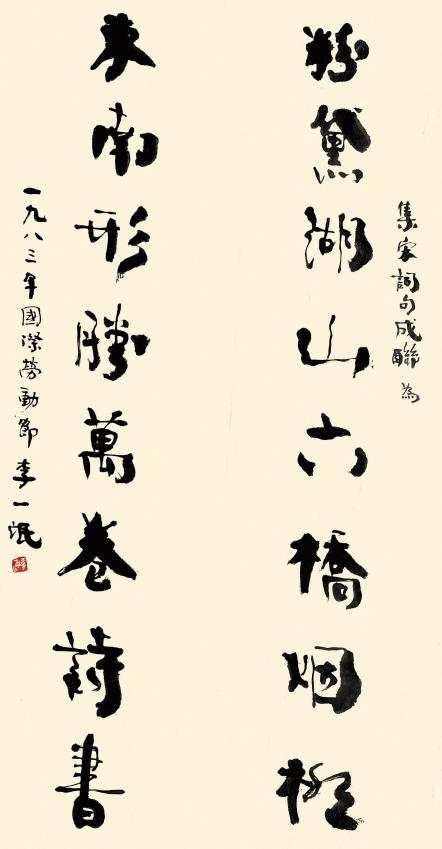 集宋詞句成聯 為
粉黛湖山六橋烟柳
东南形勝萬卷詩書
一九八三年國際勞動節 李一氓